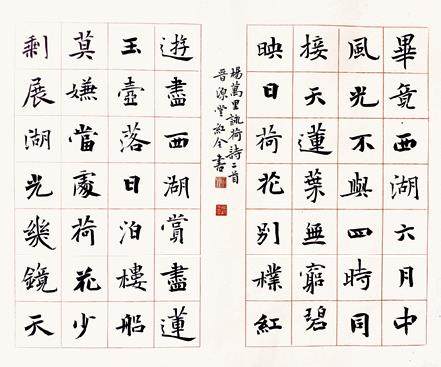 畢竟西湖六月中
風光不與四時同
接天蓮葉無窮碧
映日荷花別樣紅
楊萬里詠荷詩二首
晉源書
遊盡西湖賞盡蓮
玉壺落日泊樓船
莫嫌當處荷花少
剩展湖光幾鏡天